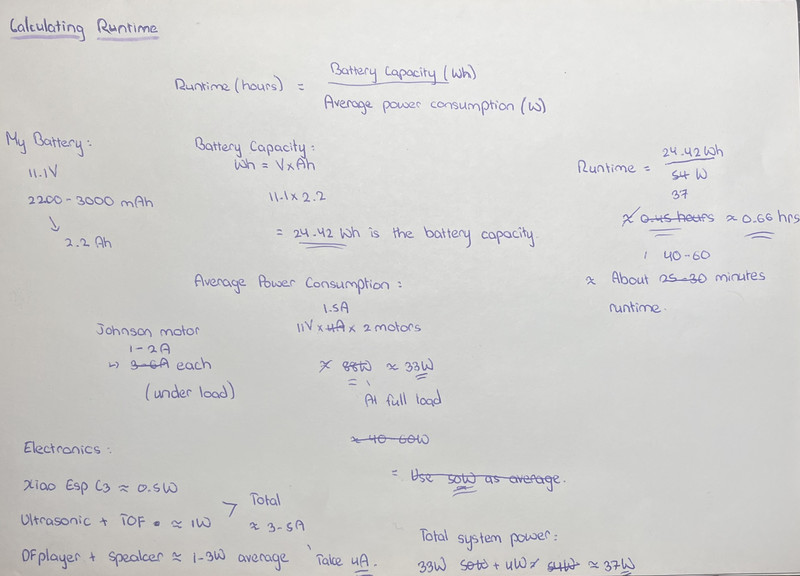 Calculating Runtime
Runtime (hours) = Battery Capacity (Wh)
Average power consumption (W)
My Battery:
11.1V
2200 - 3000 mAh
↓
2.2 Ah
Battery Capacity:
Wh = V x Ah
11.1 x 2.2
= 24.42 Wh is the battery capacity.
Runtime = 24.42 Wh
54 W
37
≈ 0.45 hours ≈ 0.66 hrs
40-60
≈ About 25-30 minutes
runtime.
Average Power Consumption:
1.5A
11V x 4A x 2 motors
≈ 88W ≈ 33W
At full load
≈ 40-60W
= Use 50W as average.
Johnson motor
1-2A
↳ 3-6A each
(under load)
Electronics:
Xiao Esp C3 ≈ 0.5W
Ultrasonic + TOF ≈ 1W
DFplayer + speaker ≈ 1-3W average
> Total
≈ 3-5A
Take 4A.
Total system power:
33W 50W + 4W ≈ 54W ≈ 37W